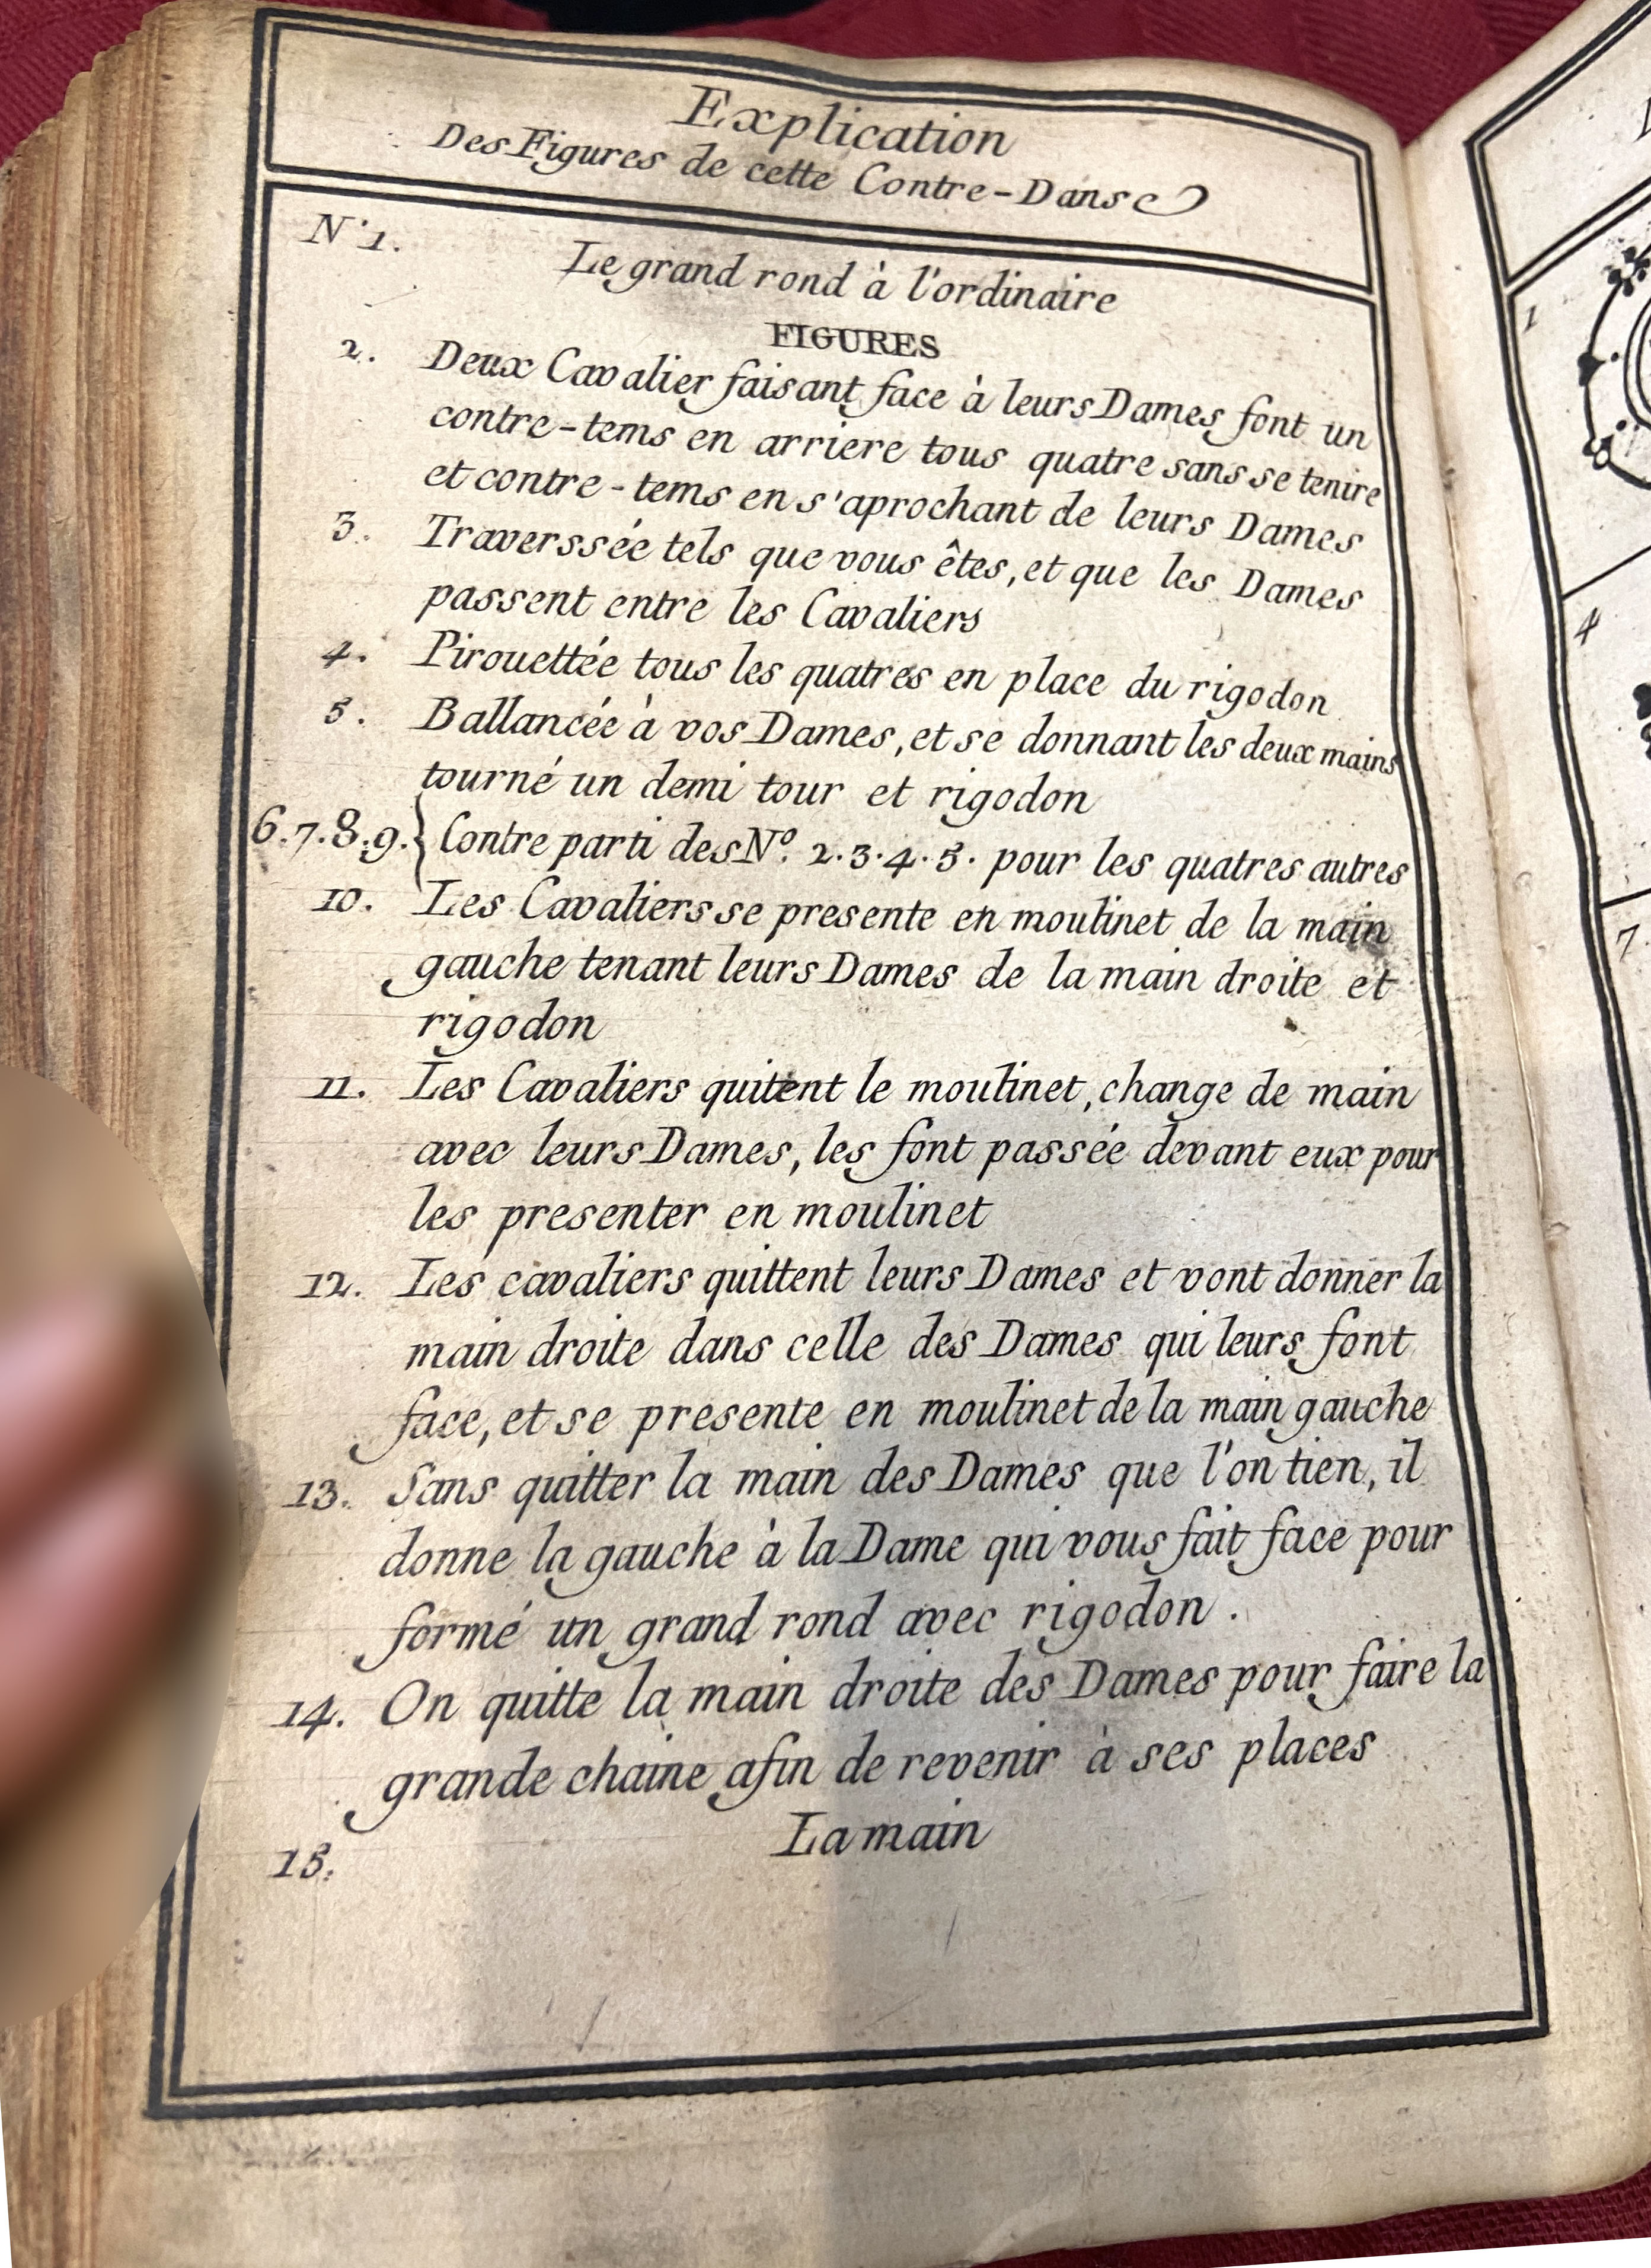 Explication
Des Figures de cette Contre-Danse
N° 1.
Le grand rond à l'ordinaire
FIGURES
2. Deux Cavalier faisant face à leurs Dames font un
contre-tems en arriere tous quatre sans se tenire
et contre-tems en s'aprochant de leurs Dames
3. Traverssée tels que vous êtes, et que les Dames
passent entre les Cavaliers
4. Pirouettée tous les quatres en place du rigodon
5. Ballancée à vos Dames, et se donnant les deux mains
tourné un demi tour et rigodon
6.7.8.9.} Contre parti des N.º 2.3.4.5. pour les quatres autres
10. Les Cavaliers se presente en moulinet de la main
gauche tenant leurs Dames de la main droite et
rigodon
11. Les Cavaliers quitent le moulinet, change de main
avec leurs Dames, les font passée devant eux pour
les presenter en moulinet
12. Les cavaliers quittent leurs Dames et vont donner la
main droite dans celle des Dames qui leurs font
face, et se presente en moulinet de la main gauche
13. Sans quitter la main des Dames que l'on tien, il
donne la gauche à la Dame qui vous fait face pour
formé un grand rond avec rigodon.
14. On quitte la main droite des Dames pour faire la
grande chaine afin de revenir à ses places
15. La main
1
4
7